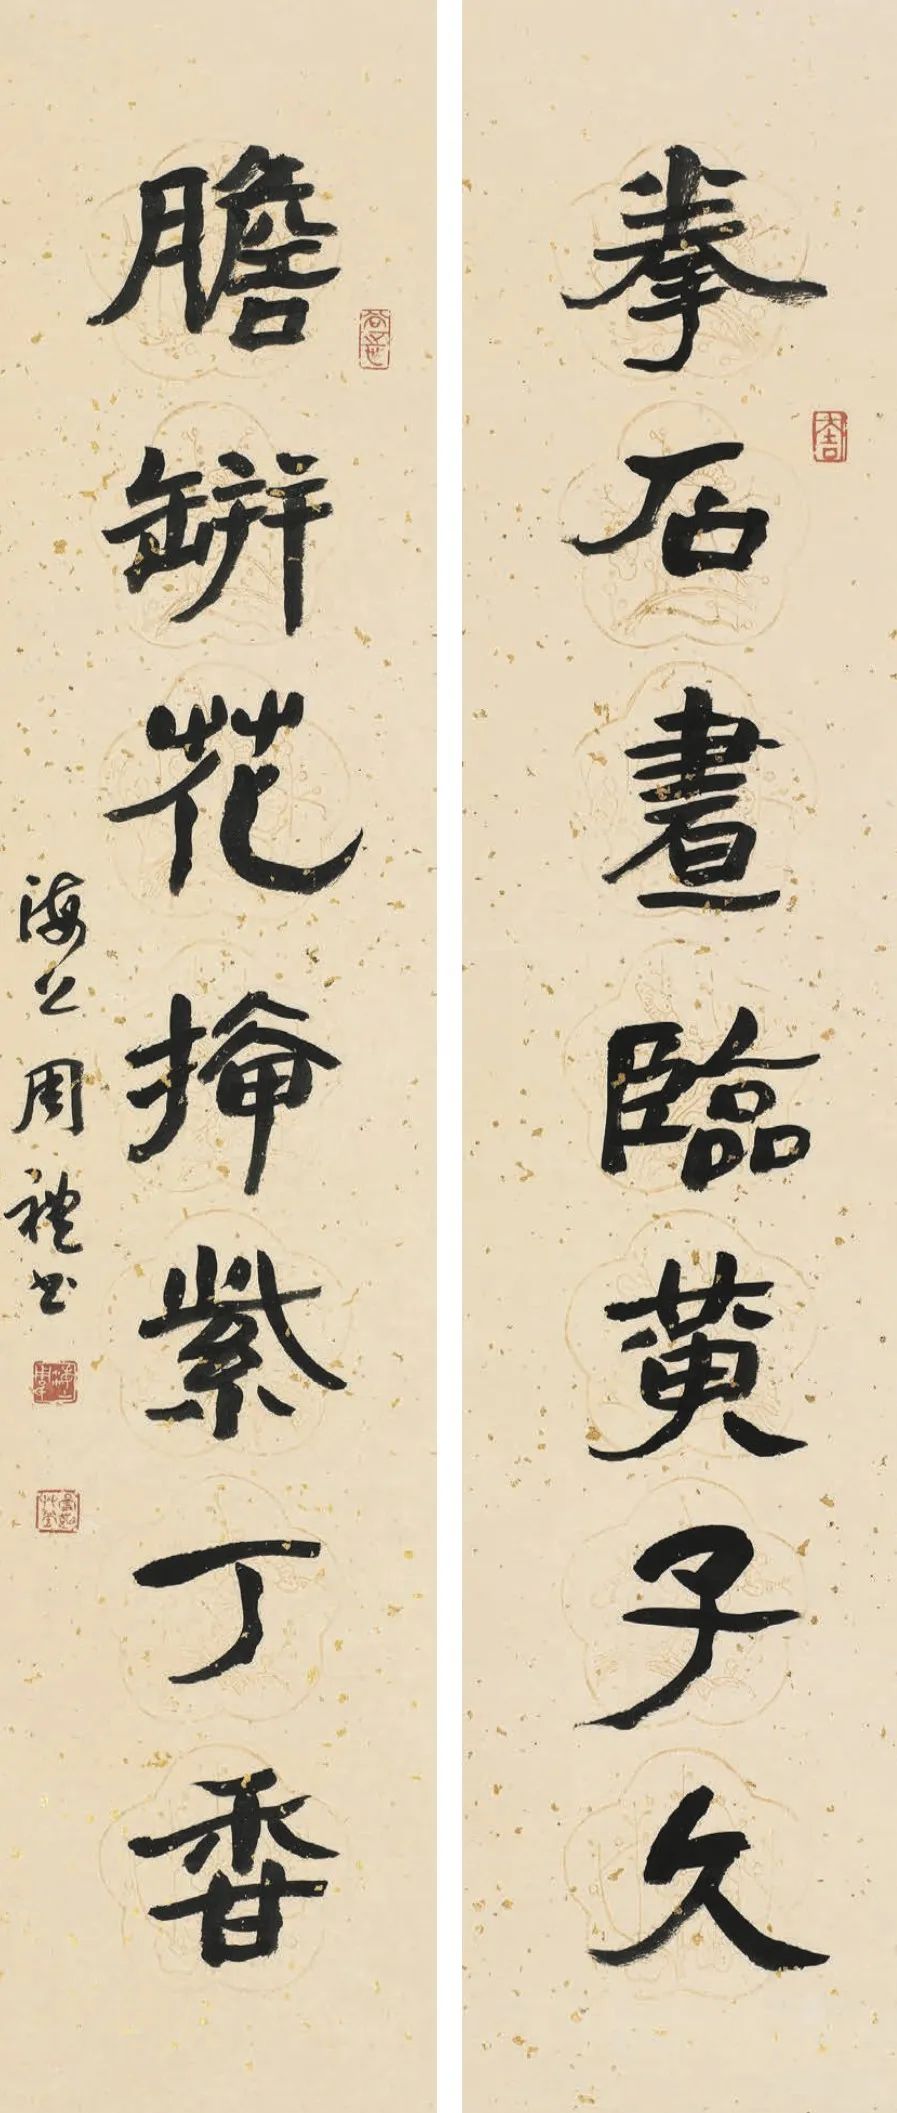 拳石畫臨黃子久
膽缾花插紫丁香
海上周禮書